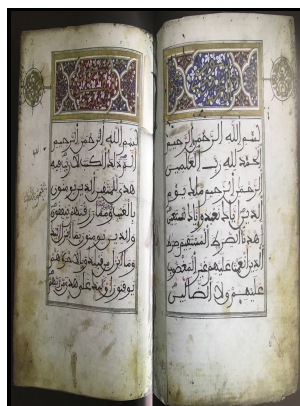 بسم الله الرحمن الرحيم
الحمد لله رب العلمين
الرحمن الرحيم ملك يوم
الدين اياك نعبد واياك نستعين
اهدنا الصرط المستقيم صرط
الذين انعمت عليهم غير المغضوب
عليهم ولا الضالين
بسم الله الرحمن الرحيم
الم ذلك الكتب لا ريب فيه
هدى للمتقين الذين يومنون
بالغيب ومما رزقنهم ينفقون
والذين يومنون بما انزل اليك
وما انزل من قبلك وبالاخرة هم
يوقنون اوليك على هدى من ربهم